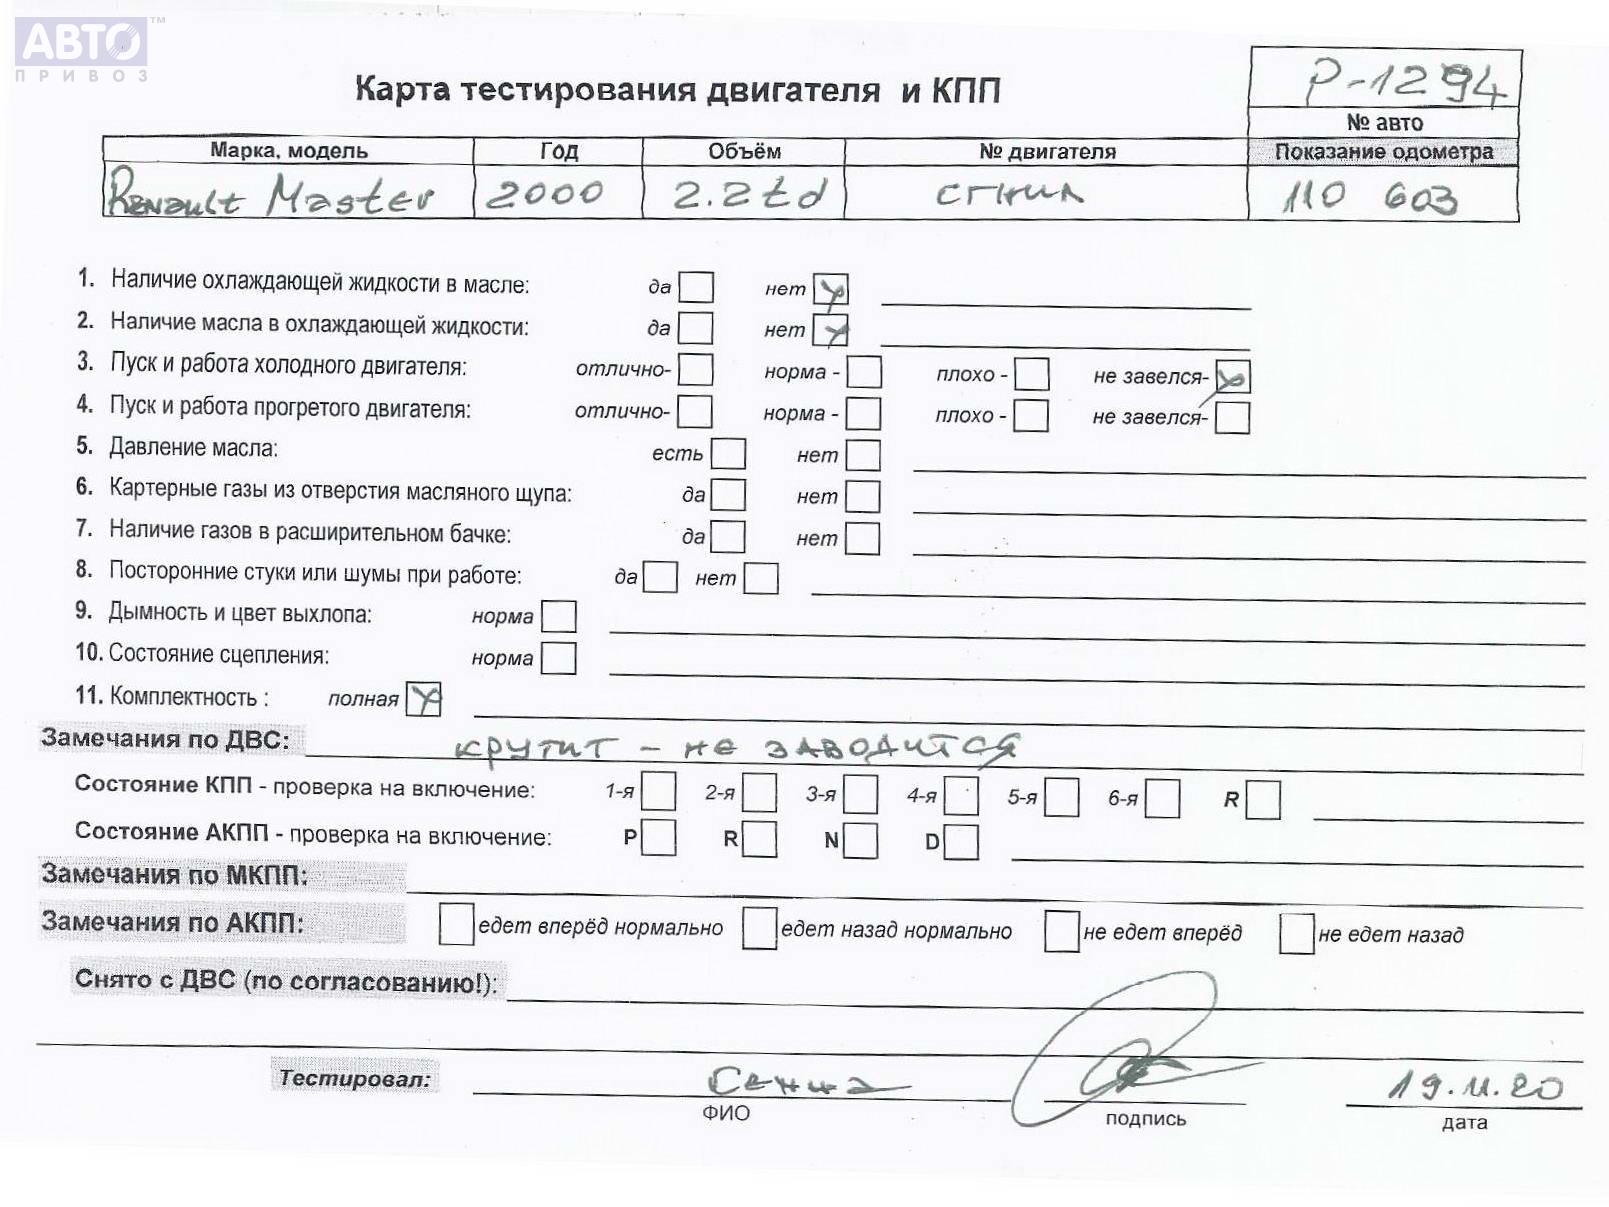 АВТО™
ПРИВОЗ
Р-1294
Карта тестирования двигателя и КПП
№ авто
Марка, модель Год Объём № двигателя Показание одометра
Renault Master 2000 2.2td сгнил 110 603
1. Наличие охлаждающей жидкости в масле: да нет
2. Наличие масла в охлаждающей жидкости: да нет
3. Пуск и работа холодного двигателя: отлично- норма - плохо - не завелся-
4. Пуск и работа прогретого двигателя: отлично- норма - плохо - не завелся-
5. Давление масла: есть нет
6. Картерные газы из отверстия масляного щупа: да нет
7. Наличие газов в расширительном бачке: да нет
8. Посторонние стуки или шумы при работе: да нет
9. Дымность и цвет выхлопа: норма
10. Состояние сцепления: норма
11. Комплектность : полная
Замечания по ДВС: крутит - не заводится
Состояние КПП - проверка на включение: 1-я 2-я 3-я 4-я 5-я 6-я R
Состояние АКПП - проверка на включение: P R N D
Замечания по МКПП:
Замечания по АКПП: едет вперёд нормально едет назад нормально не едет вперёд не едет назад
Снято с ДВС (по согласованию!):
Тестировал: 19.11.20
ФИО подпись дата